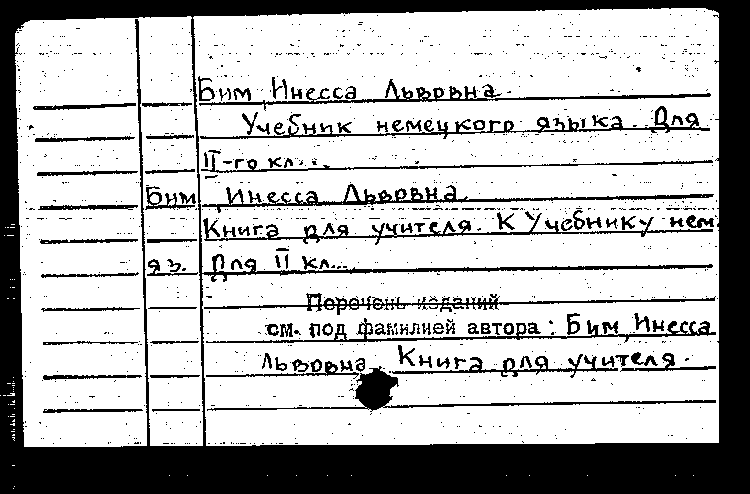 Бим, Инесса Львовна.
Учебник немецкого языка. Для
II-го кл...
Бим, Инесса Львовна.
Книга для учителя. К Учебнику нем.
яз. Для II кл...
Перечень изданий
см. под фамилией автора: Бим, Инесса
Львовна. Книга для учителя.